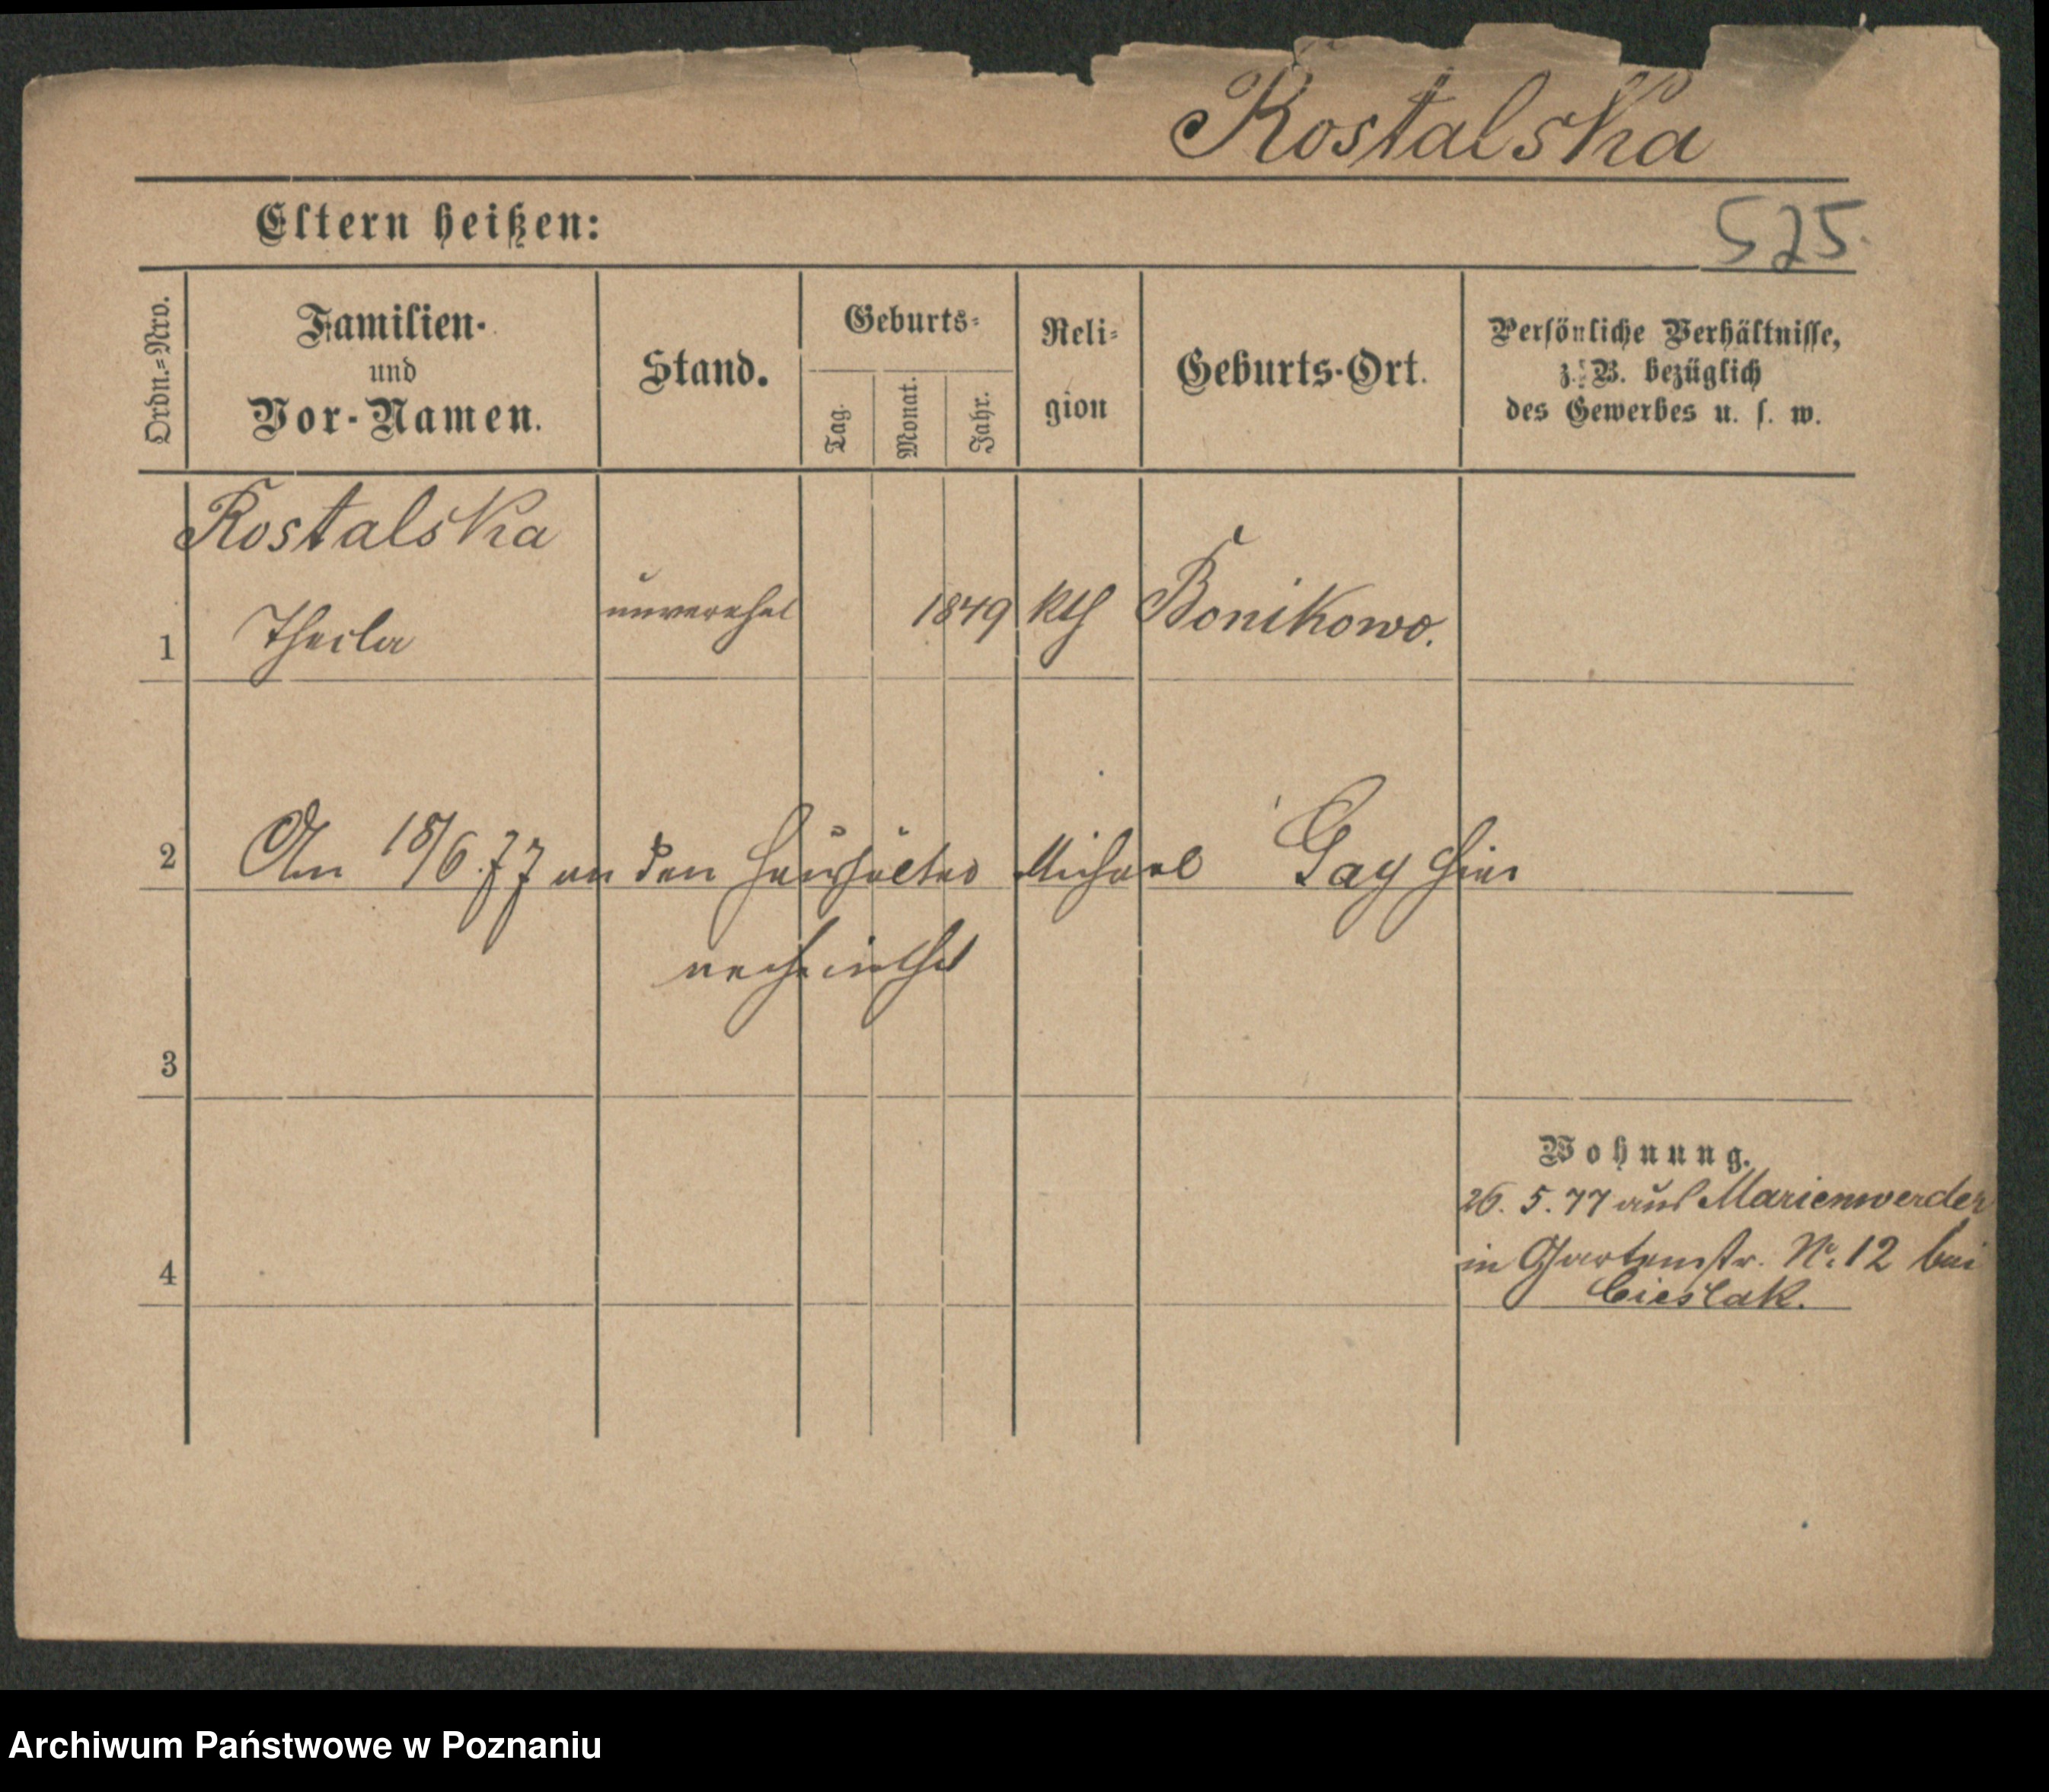 Rostalska
Eltern heißen:
525.
Ordn.=Nro.
Familien-
und
Vor-Namen.
Stand.
Geburts=
Tag.
Monat.
Jahr.
Reli=
gion
Geburts-Ort.
Persönliche Verhältnisse,
z. B. bezüglich
des Gewerbes u. s. w.
Rostalska
1 Thecla unverehel 1849 kth Bonikowo.
2 Am 18/6.77 an den Haushälter Michael Gay hier
verheirathet
3
Wohnung.
26. 5. 77 aus Marienwerder
in Gartenstr. No 12 bei
4
Cieslak.
Archiwum Państwowe w Poznaniu